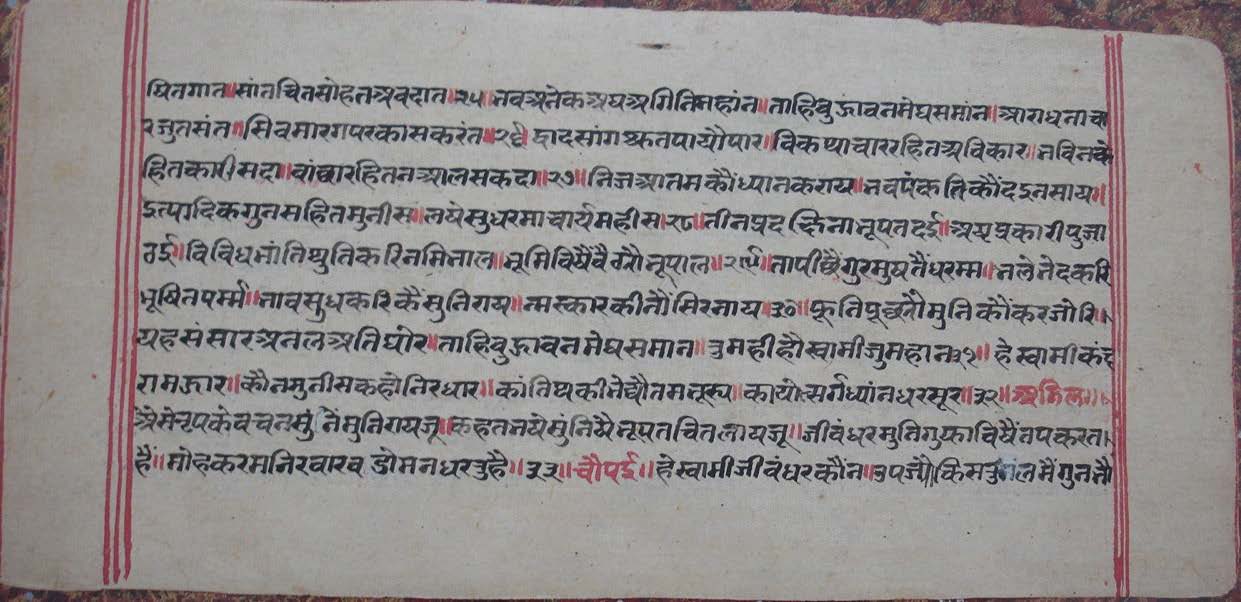 षितगात॥सांतचितसोहतअवदात॥२५॥नवअनेकअघअगितिमहांन॥ताहिबुझावनमेघसमांन॥आराधनाचा
रजुतसंत॥सिवमारगपरकासकरंत॥२६॥द्वादसांगश्रुतपायौपार॥विकथाचाररहितअविकार॥नविनके
हितकारीसदा॥वांछारहितनआलसकदा॥२७॥निजआतमकौंध्यानकराय॥नवपंकतिकौंदइनसाय॥
इत्यादिकगुनसहितमुनीस॥लयेसुधरमाचार्यमहीस॥२८॥तीनप्रदछिनानृपतदई॥अष्टप्रकारीपुजा
ठई॥विविधभांतिथुतिकरिनमिभाल॥भूमिविषैंबैठौनृपाल॥२९॥तापीछैगुरमुषतैंधरम्म॥भलेभेदकरि
भूषितपर्म्म॥भावसुधकरिकैंसुनिराय॥नमस्कारकीनौंसिरनाय॥३०॥फूनिपूछतौमुनिकौंकरजोरि॥
यहसंसारअनलअतिघोर॥ताहिबुझावनमेघसमान॥तुमहीहौस्वामीजुमहान॥३१॥हेस्वामीकंद
रामझार॥कौनमुनीसकहोनिरधार॥कांतिथकीजेद्यौतमनूरूप॥कायोत्सर्गध्यांनधरसूर॥३२॥अडिल॥
अैसेनृपकेवचनसुंनेंमुनिरायजू॥कहतभयेसुंनियैनृपतचितलायजू॥जीवंधरमुनिगुफाविषैंतपकरता
हैं॥मोहकरमनिरवारवडोमनधरतुहै॥३३॥चौपई॥हेस्वामीजीवंधरकौंन॥उपज्यौकिसकुलमैंगुनभौ